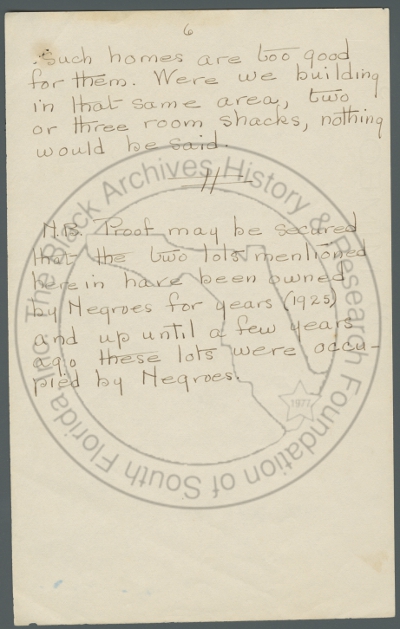 6
Such homes are too good
for them. Were we building
in that same area, two
or three room shacks, nothing
would be said.
N.B. Proof may be secured
that the two lots mentioned
herein have been owned
by Negroes for years (1925)
and up until a few years
ago these lots were occu-
pied by Negroes.
The Black Archives History & Research Foundation of South Florida Inc
1977